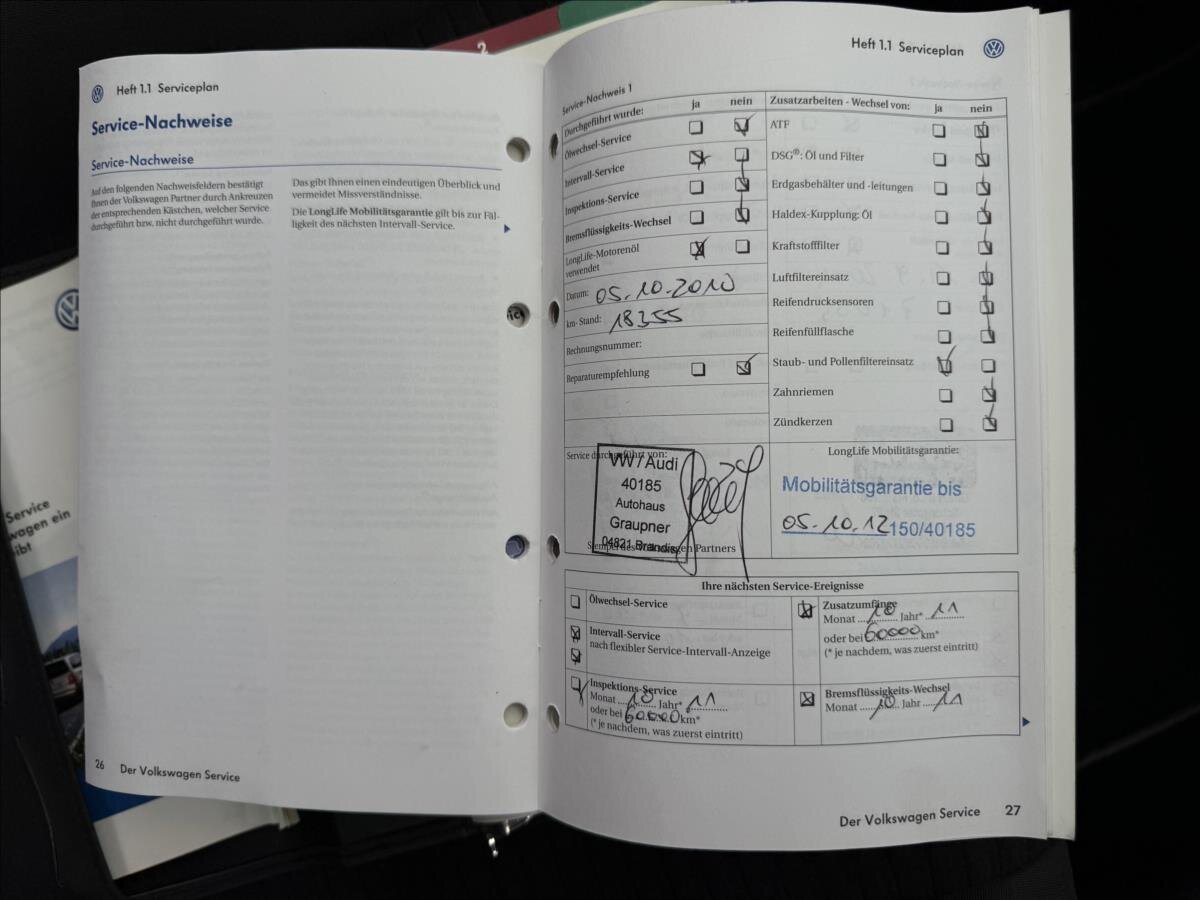 2
Heft 1.1 Serviceplan
Service-Nachweise
Service-Nachweise
Auf den folgenden Nachweisfeldern bestätigt
Ihnen der Volkswagen Partner durch Ankreuzen
der entsprechenden Kästchen, welcher Service
durchgeführt bzw. nicht durchgeführt wurde.
Das gibt Ihnen einen eindeutigen Überblick und
vermeidet Missverständnisse.
Die LongLife Mobilitätsgarantie gilt bis zur Fäl-
ligkeit des nächsten Intervall-Service.
26 Der Volkswagen Service
Service
wagen ein
ibt
Heft 1.1 Serviceplan
Service-Nachweis 1
Durchgeführt wurde: ja nein
Ölwechsel-Service
Intervall-Service
Inspektions-Service
Bremsflüssigkeits-Wechsel
LongLife-Motorenöl
verwendet
Datum: 05.10.2010
km-Stand: 18355
Rechnungsnummer:
Reparaturempfehlung
Zusatzarbeiten - Wechsel von: ja nein
ATF
DSG®: Öl und Filter
Erdgasbehälter und -leitungen
Haldex-Kupplung: Öl
Kraftstofffilter
Luftfiltereinsatz
Reifendrucksensoren
Reifenfüllflasche
Staub- und Pollenfiltereinsatz
Zahnriemen
Zündkerzen
Service durchgeführt von:
VW / Audi
40185
Autohaus
Graupner
04821 Brandis
Partners
LongLife Mobilitätsgarantie:
Mobilitätsgarantie bis
05.10.12 150/40185
Ihre nächsten Service-Ereignisse
Ölwechsel-Service
Intervall-Service
nach flexibler Service-Intervall-Anzeige
Inspektions-Service
Monat 10 Jahr* 11
oder bei 60000 km*
(* je nachdem, was zuerst eintritt)
Zusatzumfänge
Monat 10 Jahr* 11
oder bei 60000 km*
(* je nachdem, was zuerst eintritt)
Bremsflüssigkeits-Wechsel
Monat 10 Jahr 11
Der Volkswagen Service 27